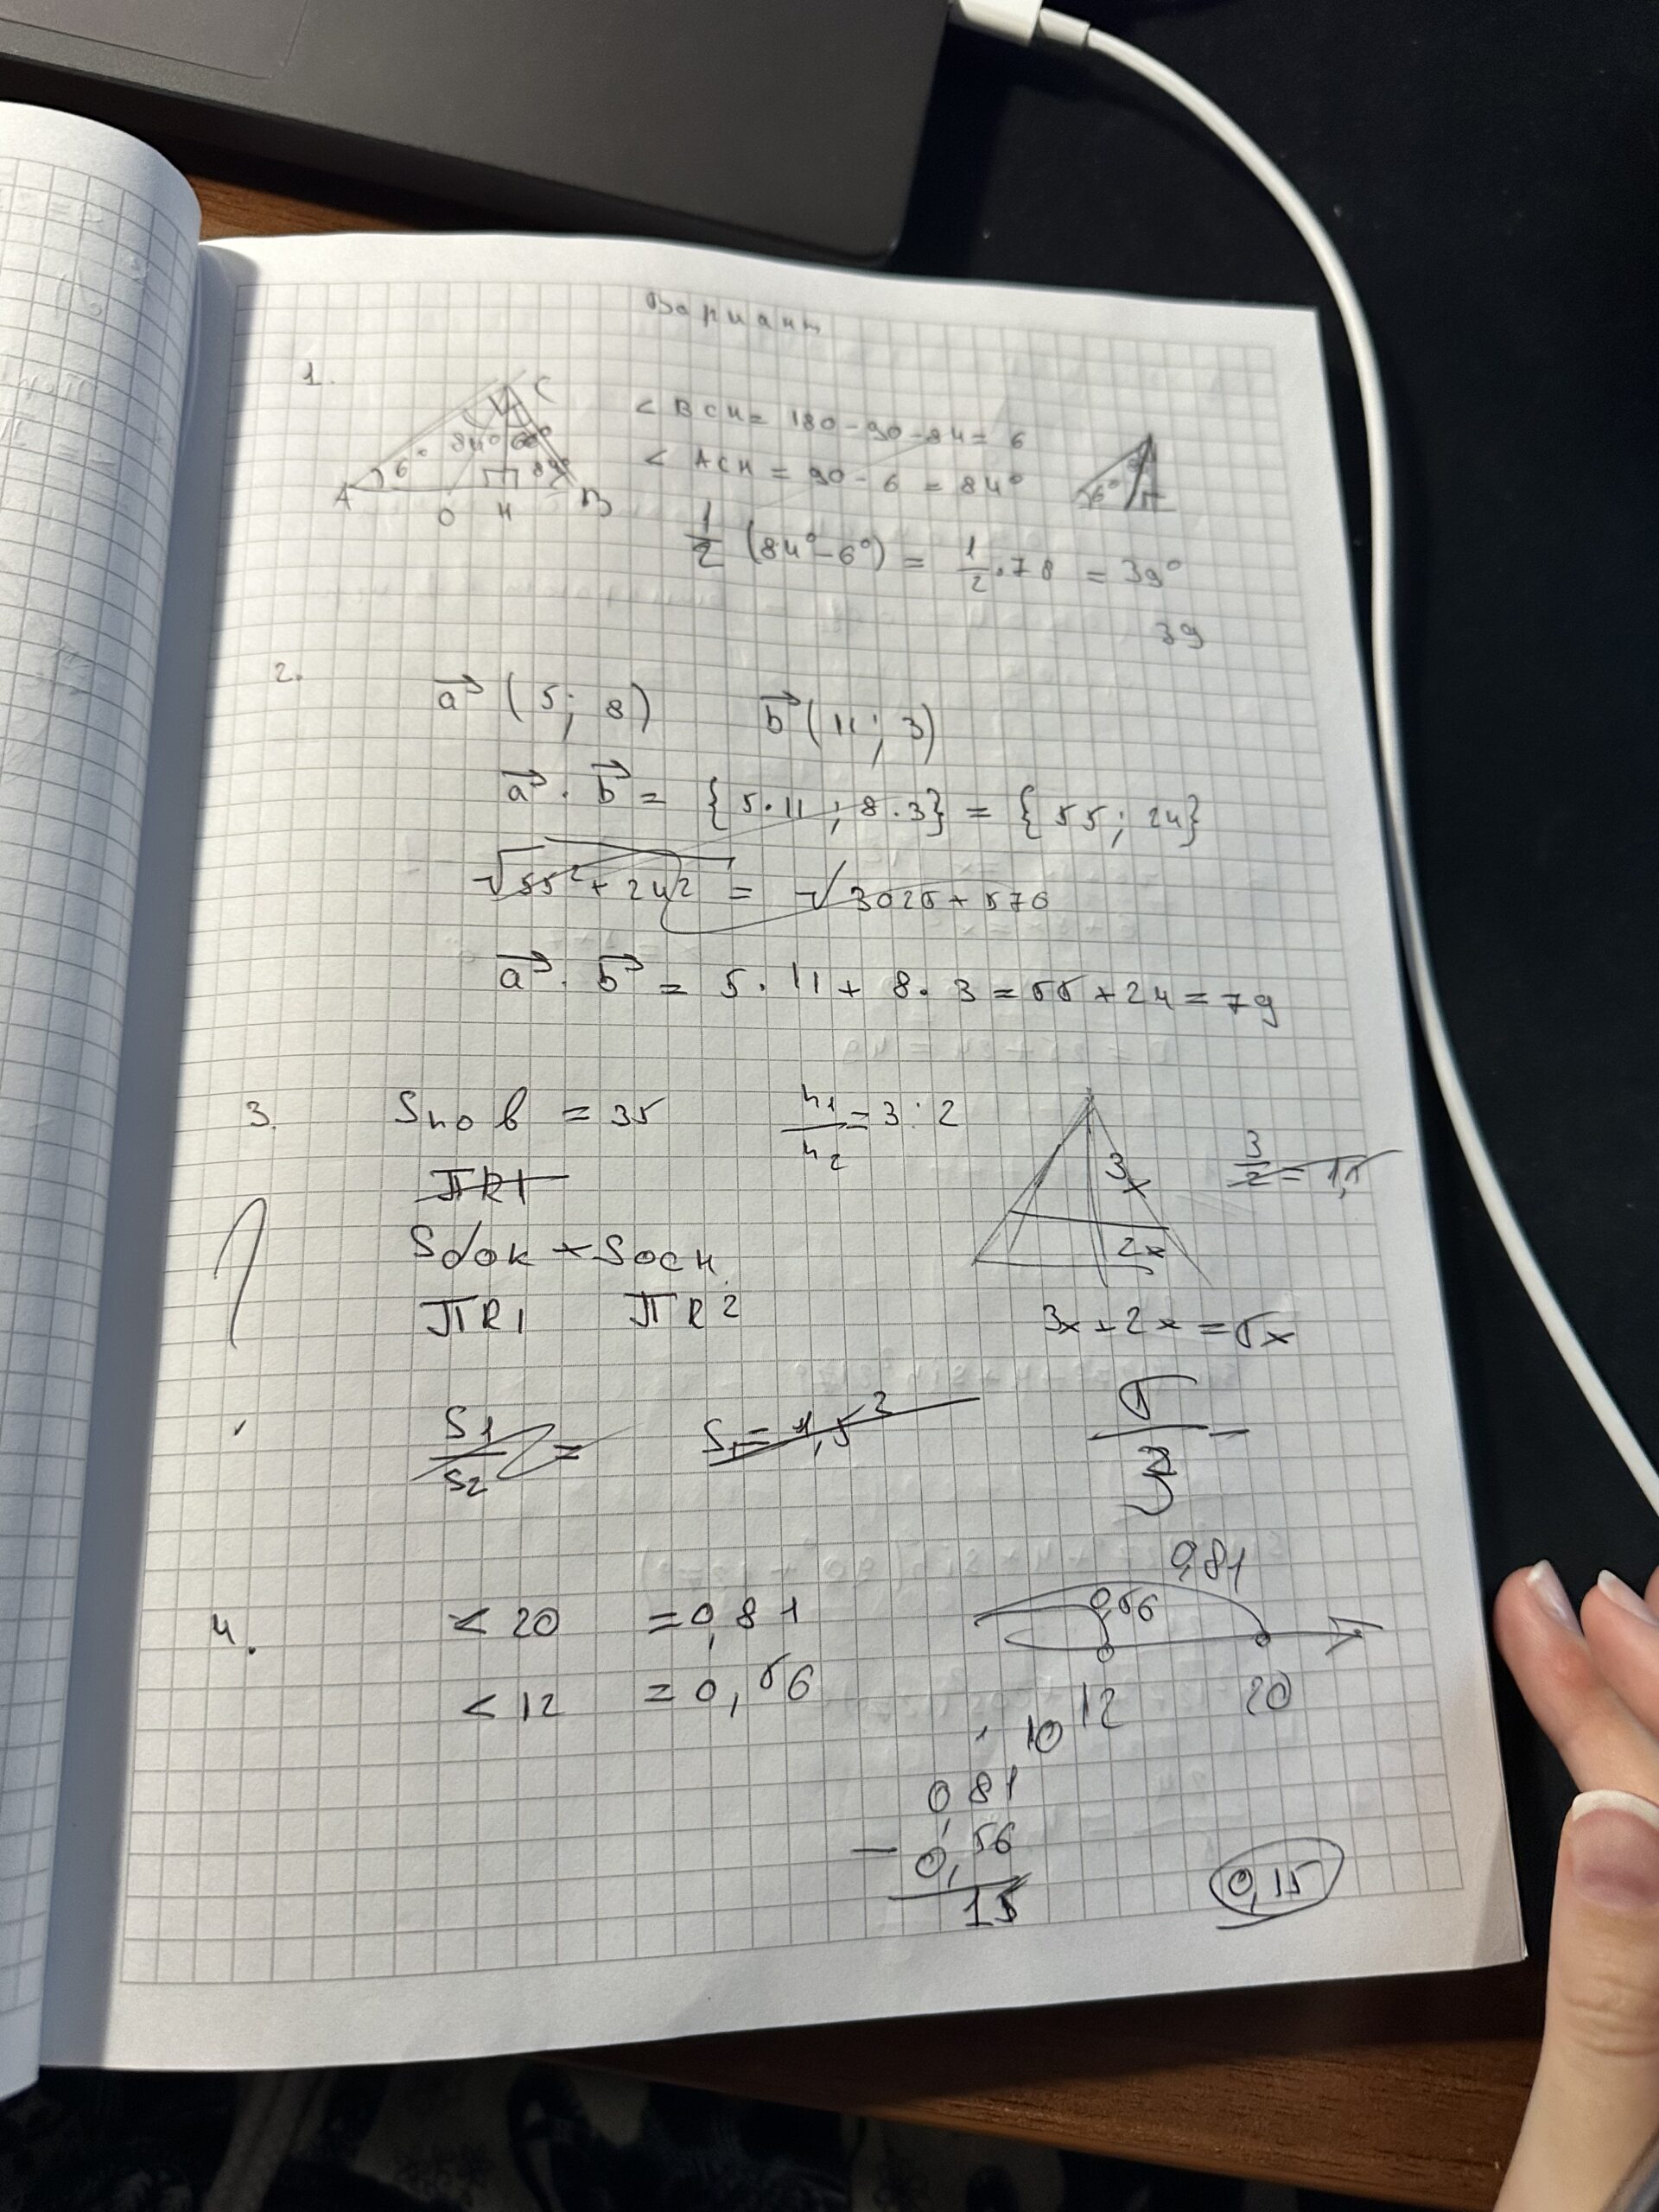 Вариант
1.
C
84° 6°
6° 84°
A O H B
< BCH = 180 - 90 - 84 = 6
< ACH = 90 - 6 = 84°
6°
1/2 (84° - 6°) = 1/2 · 78 = 39°
39
2.
a (5; 8) b (11; 3)
a · b = {5·11; 8·3} = {55; 24}
√55² + 24² = √3025 + 576
a · b = 5 · 11 + 8 · 3 = 55 + 24 = 79
3. Sпов = 35 h1/h2 = 3 : 2
3x
3/2 = 1,5
πR1
Sбок + Sосн
2x
πR1 πR2
3x + 2x = 5x
S1/S2 = S1 = 1,5² 5/3 =
4. < 20 = 0,81
< 12 = 0,56
0,81
0,56
12 20
10
0,81
- 0,56
15
0,15